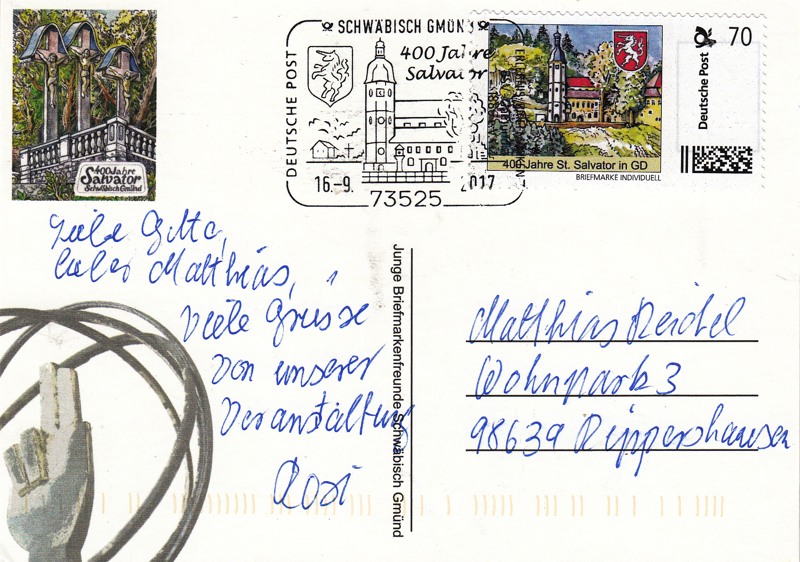 400 Jahre
Salvator
Schwäbisch Gmünd
SCHWÄBISCH GMÜND
DEUTSCHE POST
400 Jahre
Salvator
16.-9. 2017
73525
400 Jahre St. Salvator in GD
BRIEFMARKE INDIVIDUELL
Deutsche Post
70
Liebe Gitta,
lieber Matthias,
Viele Grüsse
von unserer
Veranstaltung
Rosi
Junge Briefmarkenfreunde Schwäbisch Gmünd
Matthias Reidel
Wohnpark 3
98639 Rippershausen